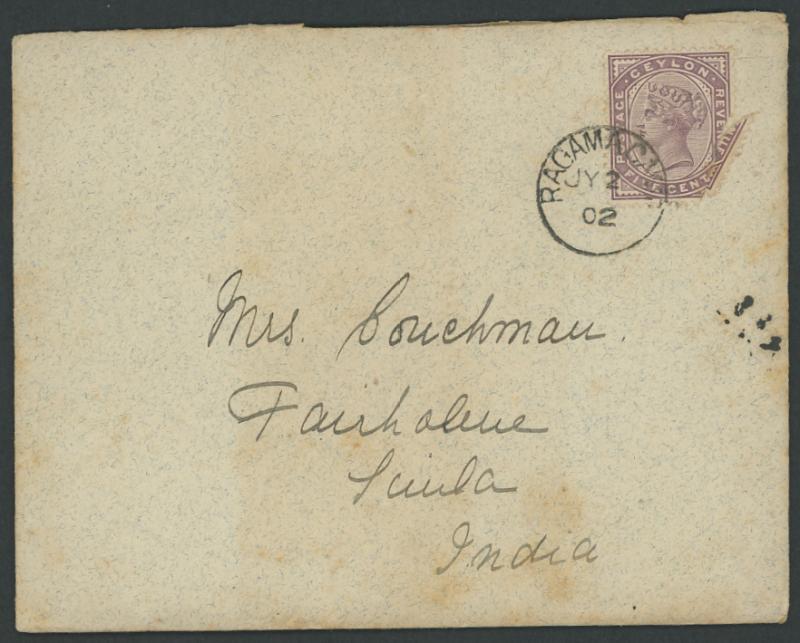 POSTAGE · CEYLON · REVENUE
FIVE CENTS
RAGAMA CA
JY 2
02
Mrs. Couchman.
Fairholme
Simla
India